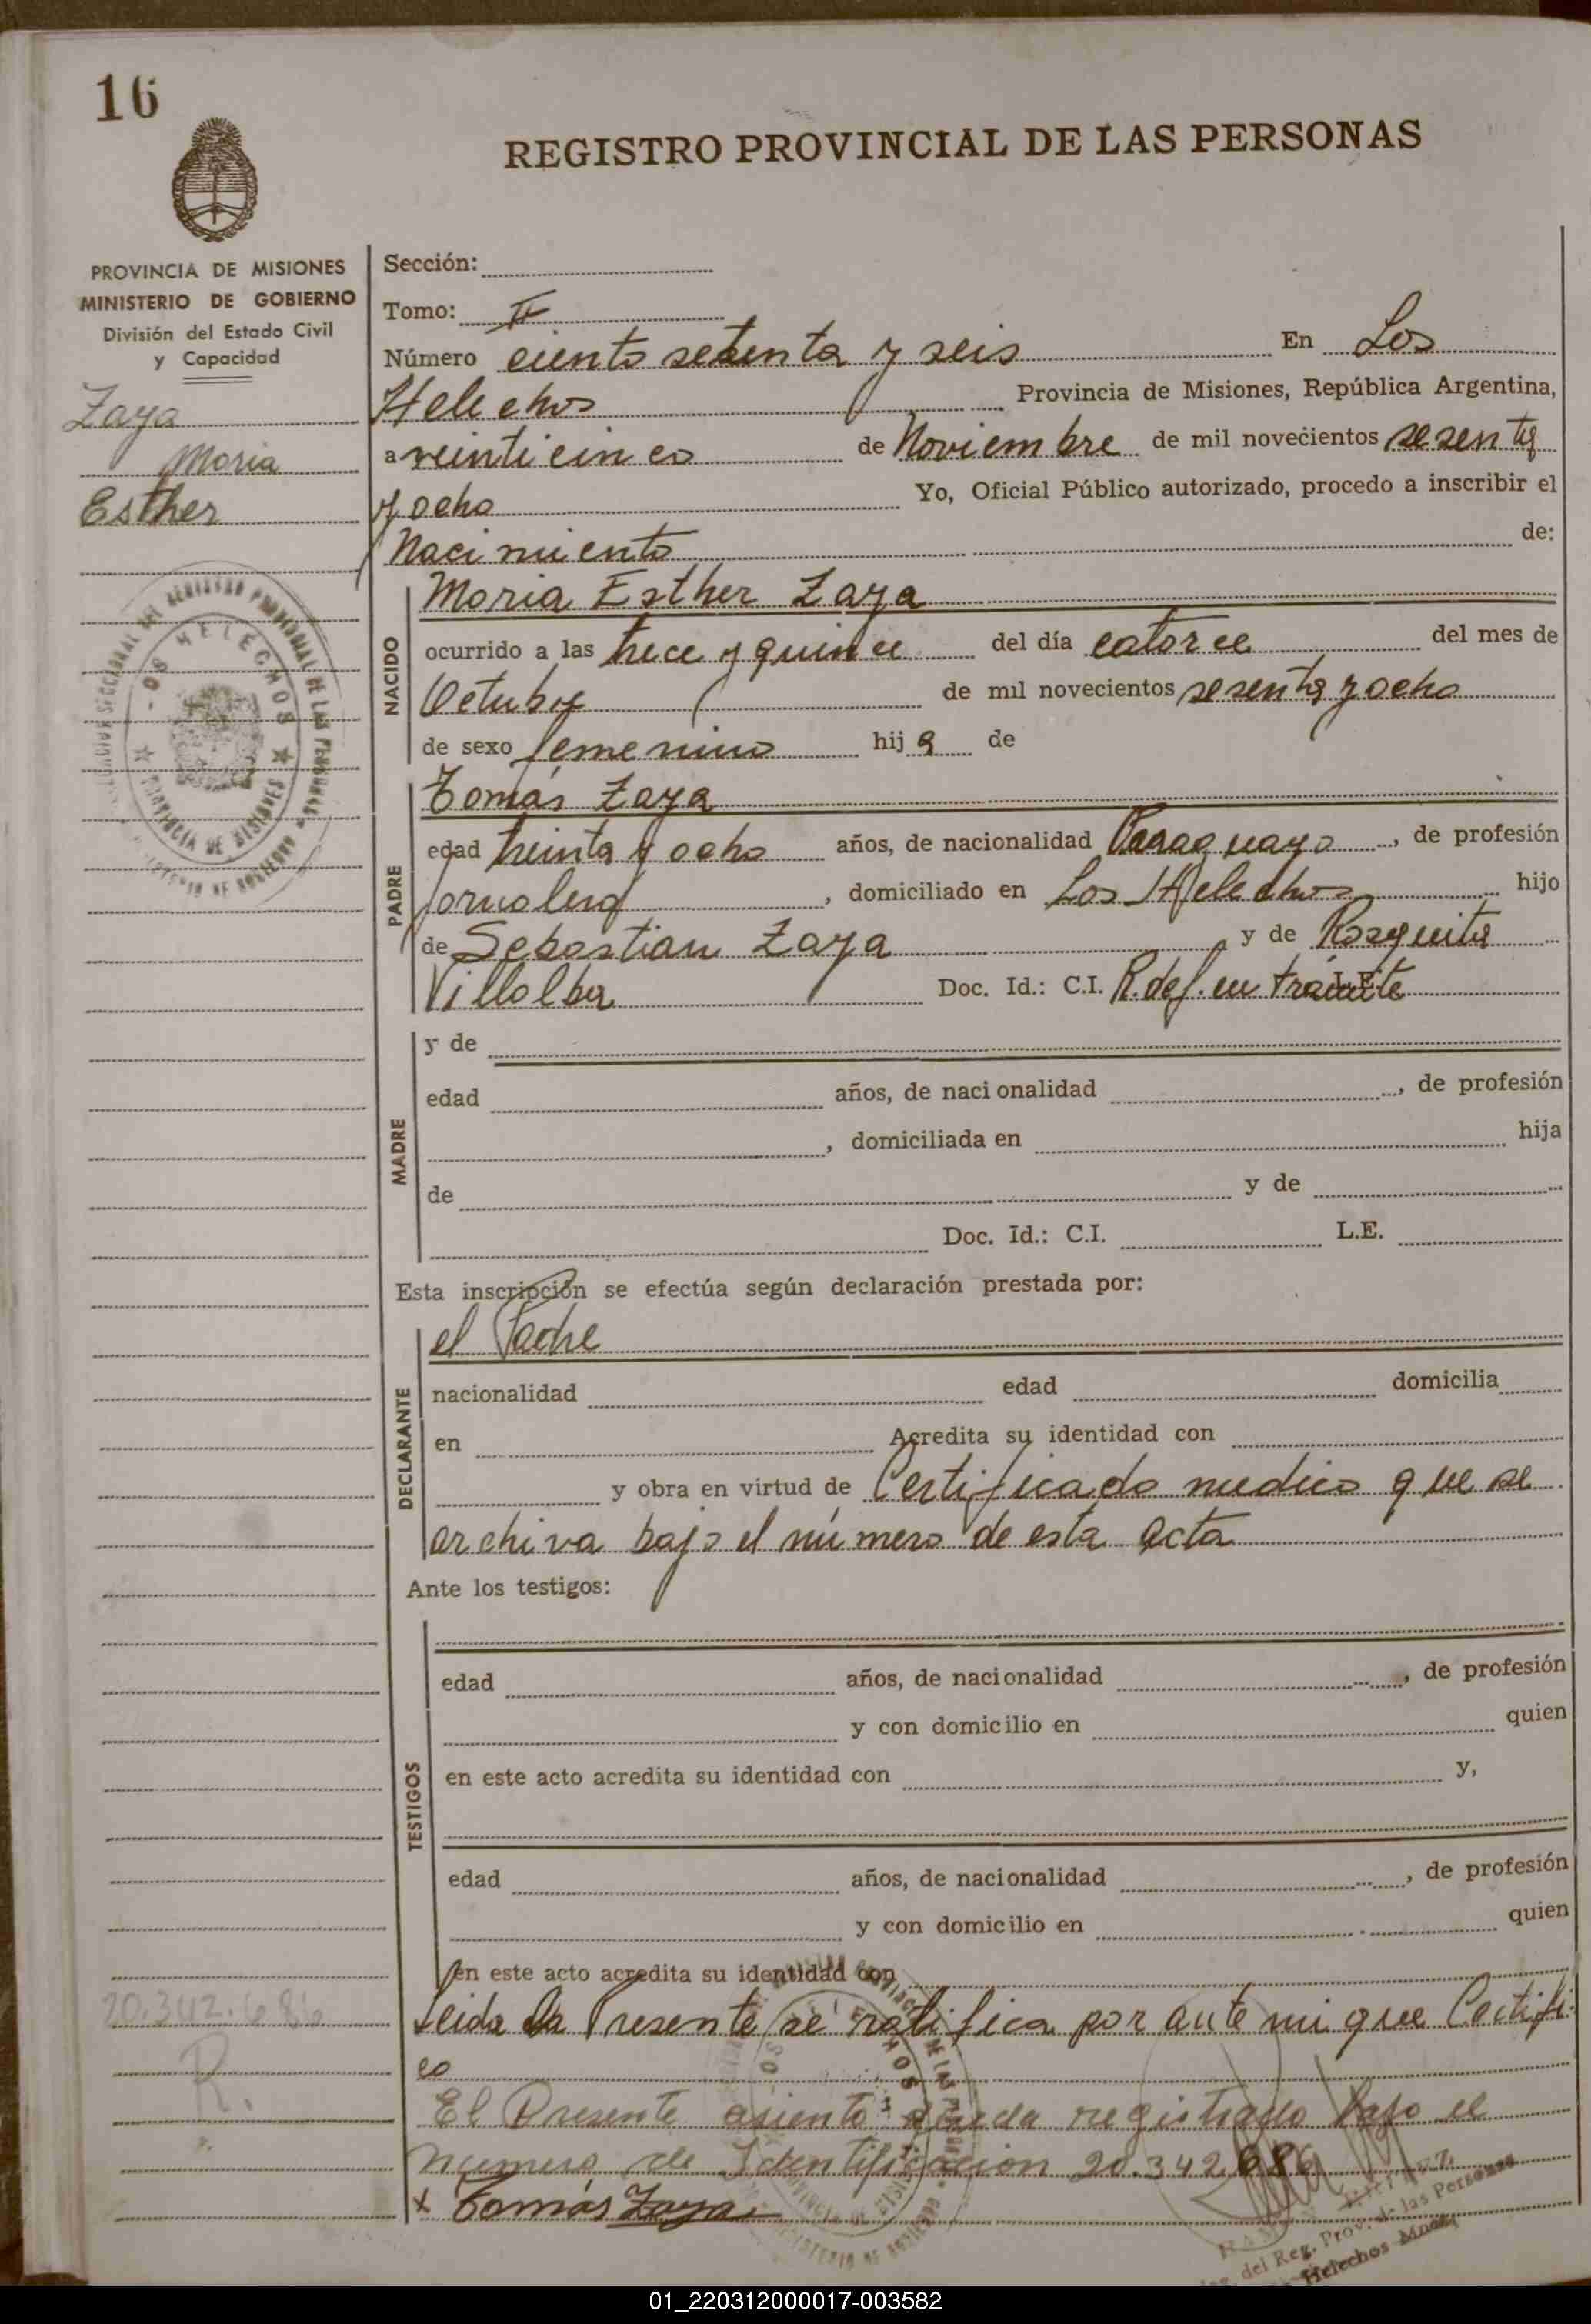 16
REGISTRO PROVINCIAL DE LAS PERSONAS
PROVINCIA DE MISIONES
MINISTERIO DE GOBIERNO
División del Estado Civil
y Capacidad
Zaya
Maria
Esther
Sección:
Tomo: II
Número ciento setenta y seis En Los
Helechos Provincia de Misiones, República Argentina,
a veinticinco de Noviembre de mil novecientos sesenta
y ocho Yo, Oficial Público autorizado, procedo a inscribir el
Nacimiento de:
NACIDO
Maria Esther Zaya
ocurrido a las trece y quince del día catorce del mes de
Octubre de mil novecientos sesenta y ocho
de sexo femenino hija de
PADRE
Tomás Zaya
edad treinta y ocho años, de nacionalidad Paraguayo, de profesión
Jornalero, domiciliado en Los Helechos hijo
de Sebastian Zaya y de Rosquita
Villalba Doc. Id.: C.I. R. def. en trámite
MADRE
y de
edad años, de nacionalidad , de profesión
, domiciliada en hija
de y de
Doc. Id.: C.I. L.E.
Esta inscripción se efectúa según declaración prestada por:
DECLARANTE
el Padre
nacionalidad edad domicilia
en Acredita su identidad con
y obra en virtud de Certificado medico que se
archiva bajo el número de esta acta
Ante los testigos:
TESTIGOS
edad años, de nacionalidad , de profesión
y con domicilio en quien
en este acto acredita su identidad con y,
edad años, de nacionalidad , de profesión
y con domicilio en quien
en este acto acredita su identidad con
Leida la Presente se ratifica por ante mi que Certifi-
co
El Presente asiento queda registrado bajo el
numero de Identificacion 20.342.686
x Tomás Zaya
20.342.686
R.
del Reg. Prov. de las Personas
Helechos Mnes.
01_220312000017-003582